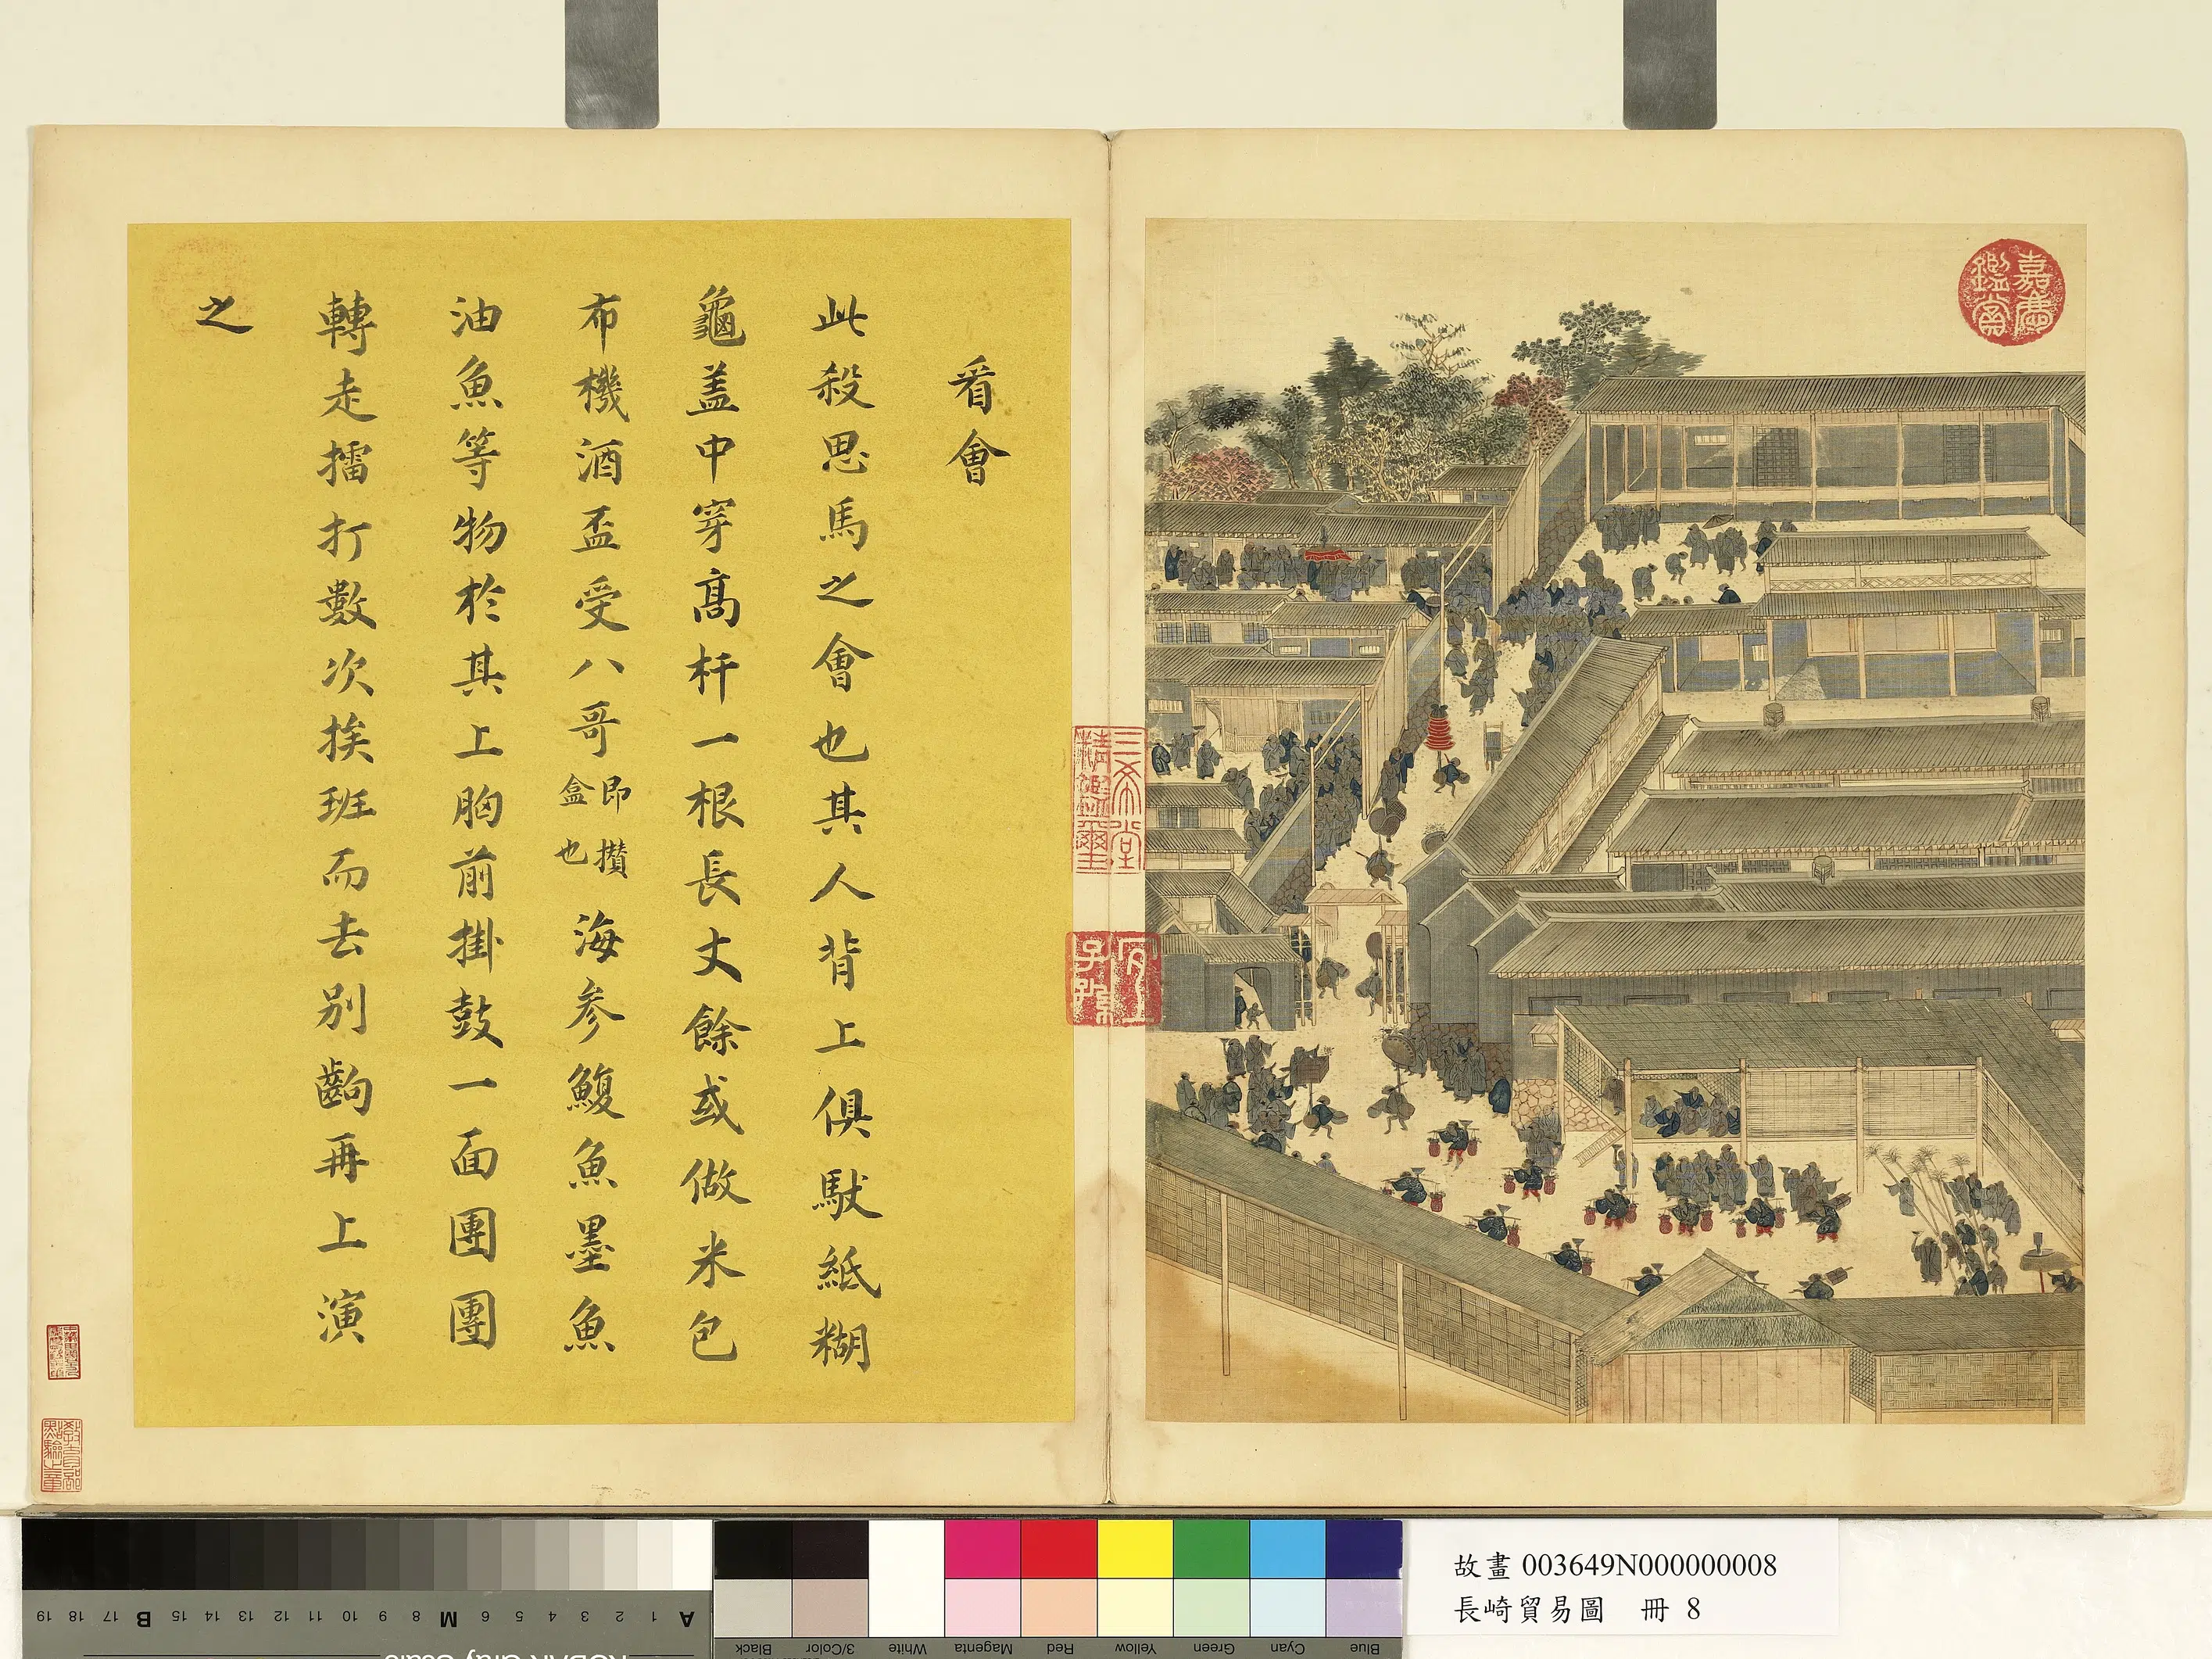 看會
此殺思馬之會也其人背上俱馱紙糊
龜盖中穿高杆一根長丈餘或做米包
布機酒盃受八哥即攢盒也海參鰒魚墨魚
油魚等物於其上胸前掛鼓一面團團
轉走擂打數次挨班而去別齣再上演
之
嘉慶鑑賞
三希堂精鑑璽
宜子孫
教育部點驗之章
故畫 003649N000000008
長崎貿易圖 冊 8
A 1 2 3 4 5 6 M 8 9 10 11 12 13 14 15 B 17 18 19
Blue Cyan Green Yellow Red Magenta White 3/Color Black